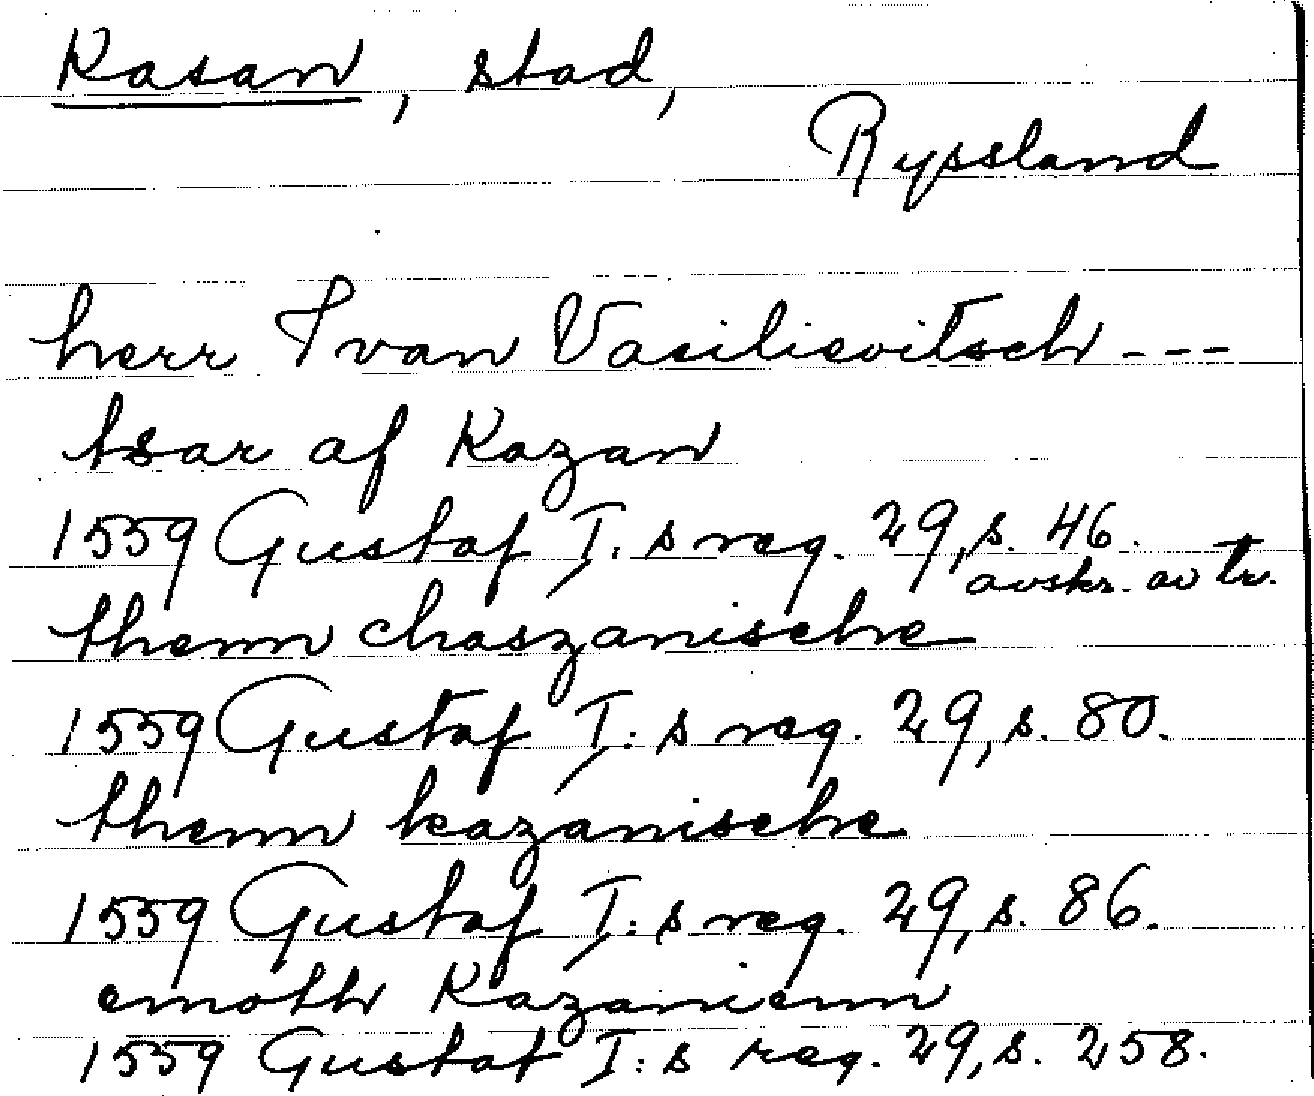 Kasan, stad,
Ryssland
herr Ivan Vasilievitsch ---
tsar af Kazan
1559 Gustaf I:s reg. 29, s. 46.
avskr. av tr.
thenn chaszanische
1559 Gustaf I:s reg. 29, s. 80.
thenn kazanische
1559 Gustaf I:s reg. 29, s. 86.
emoth Kazanienn
1559 Gustaf I:s reg. 29, s. 258.